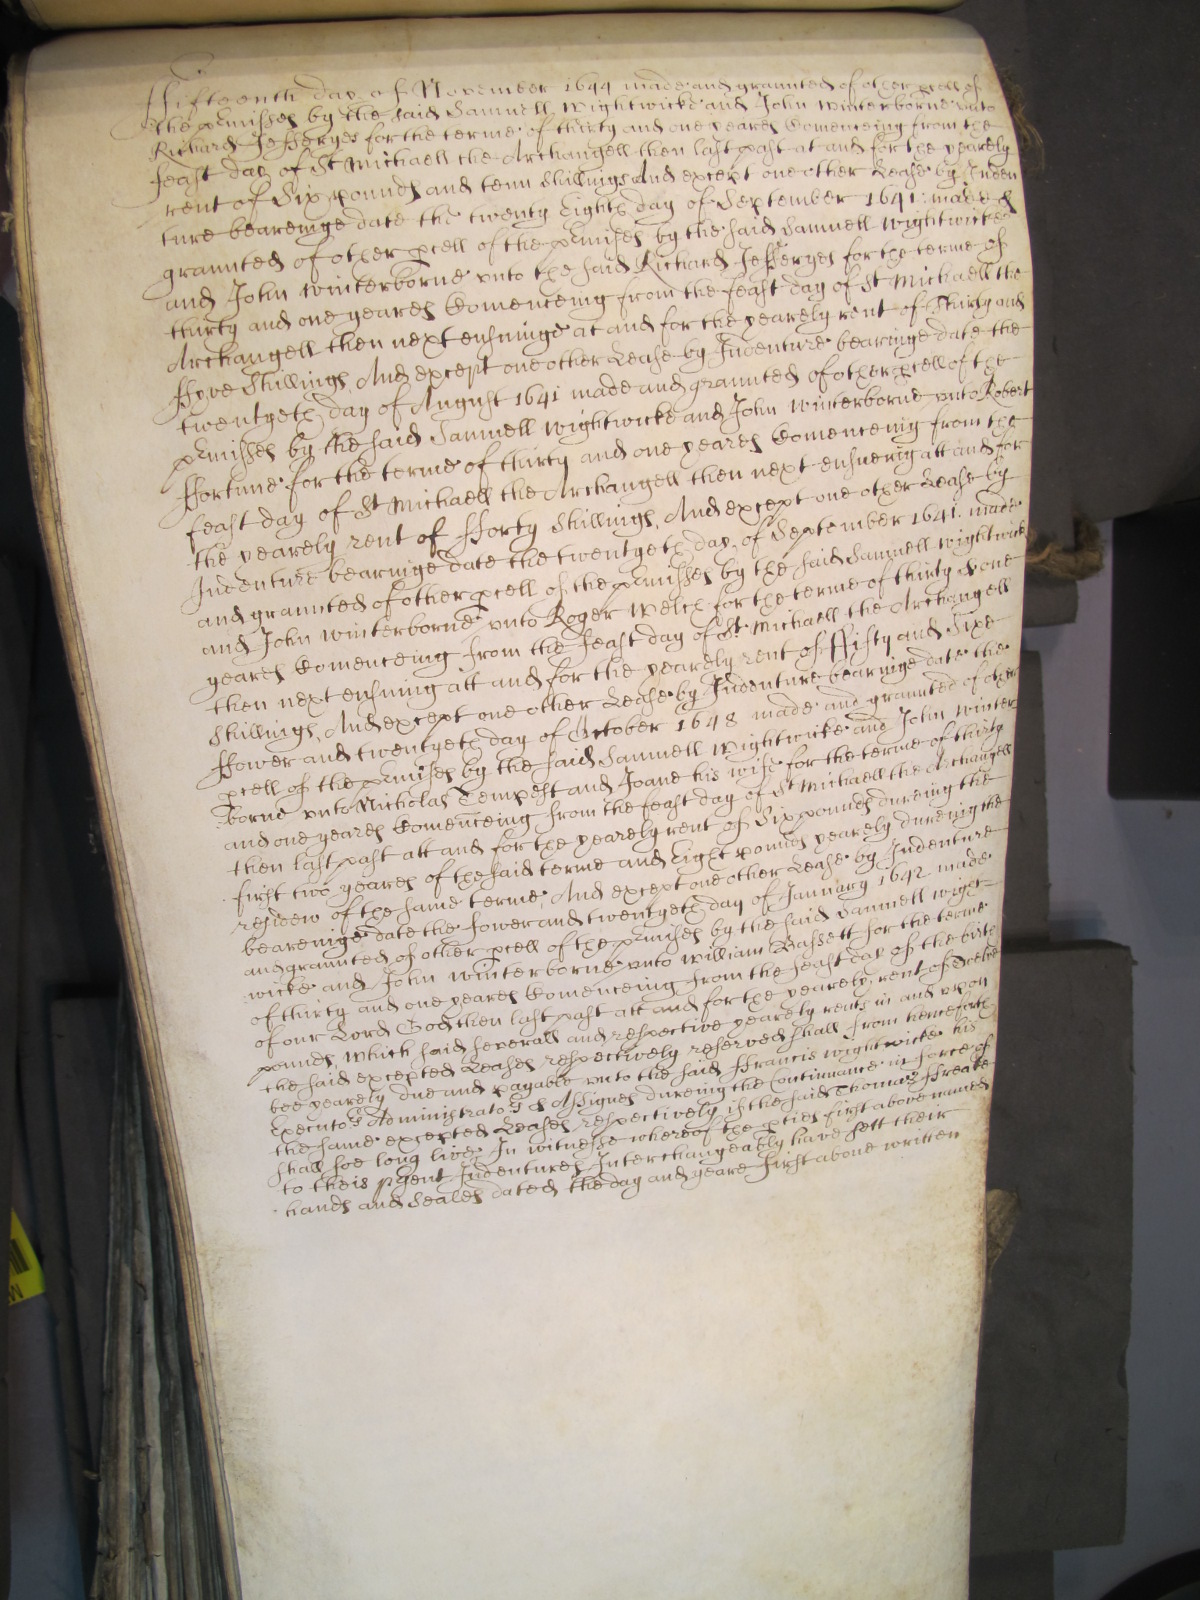 ffifteenth day of November 1644 made and graunted of other pcell of
the pmisses by the said Samuell Wightwicke and John Winterborne unto
Richard Jefferyes for the terme of thirty and one yeares Comenceing from the
feast day of St Michaell the Archangell then last past at and for the yearely
rent of Six pounds and tenn Shillings And except one other Lease by Inden
ture beareinge date the twenty Eight day of September 1641 made &
graunted of other pcell of the pmises by the said Samuell Wightwicke
and John Winterborne unto the said Richard Jefferyes for the terme of
thirty and one yeares Comenceing from the feast day of St Michaell the
Archangell then next ensuinge at and for the yearely rent of Thirty and
ffyve Shillings, And except one other Lease by Indenture bearinge date the
twentyeth day of August 1641 made and graunted of other pcell of the
pmisses by the said Samuell Wightwicke and John Winterborne unto Robert
ffortune for the terme of thirty and one yeares Comenceing from the
feast day of St Michaell the Archangell then next ensueing att and for
the yearely rent of fforty Shillings, And except one other Lease by
Indenture bearinge date the twentyeth day of September 1641 made
and graunted of other pcell of the pmisses by the said Samuell Wightwick
and John Winterborne unto Roger Welch for the terme of thirty & one
yeares Comenceing from the feast day of St Michaell the Archangell
then next ensuing att and for the yearely rent of ffifty and Sixe
Shillings, And except one other Lease by Indenture bearinge date the
ffower and twentyeth day of October 1648 made and graunted of other
pcell of the pmises by the said Samuell Wightwicke and John Winter
borne unto Nicholas Tempest and Joane his wife for the terme of thirty
and one yeares Comenceing from the feast day of St Michaell the Archangell
then last past att and for the yearely rent of Six pounds dureing the
first two yeares of the said terme and Eight pounds yearely dureing the
residew of the same terme, And except one other Lease by Indenture
beareinge date the fower and twentyeth day of January 1642 made
and graunted of other pcell of the pmises by the said Samuell Wight=
wicke and John Winterborne unto William Bassett for the terme
of thirty and one yeares Comenceing from the feast day of the birth
of our Lord God then last past att and for the yearely rent of Twelve
pounds, Which said severall and respective yearely rents in and upon
the said excepted Leases respectively reserved shall from henceforth
bee yearely due and payable unto the said ffrancis Wightwicke his
Executors Administrators & Assignes dureing the Continuance in force of
the same excepted Leases respectively if the said Thomas ffreake
shall soe long live, In witnesse whereof the pties first above named
to theis psent Indentures Interchangeably have sett their
hands and Seales dated the day and yeare first above written